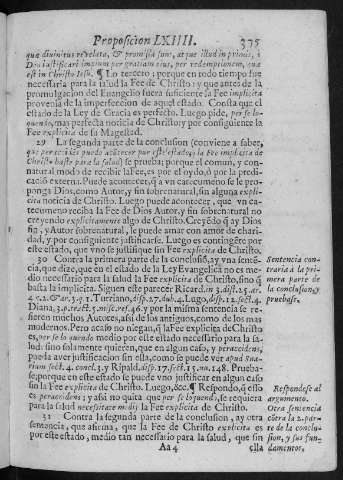 Proposicion LXIIII. 375
quæ divinitus revelata, & promissa sunt, atque illud in primis, à
Deo iustificari impium per gratiam eius, per redemptionem, quæ
est in Christo Iesu. ¶ Lo tercero; porque en todo tiempo fue
necessaria para la salud la Fee de Christo; y que antes de la
promulgacion del Evangelio fuera suficiente la Fee implicita
provenia de la imperfeccion de aquel estado. Consta que el
estado de la Ley de Gracia es perfecto. Luego pide, per se lo-
quendo, mas perfecta noticia de Christo; y por consiguiente la
Fee explicita de su Magestad.
29 La segunda parte de la conclusion (conviene a saber,
que per accidens puede acontecer por este estado, q̃ la Fee implicita de
Christo baste para la salud) se prueba; porque el comun, y con-
natural modo de recibir la Fee, es por el oydo, ò por la predi-
cacion externa. Puede acontecer, q̃ a vn catecumeno se le pro-
ponga Dios, como Autor, y fin sobrenatural, sin alguna expli-
cita noticia de Christo. Luego puede acontecer, que vn ca-
tecumeno reciba la Fee de Dios Autor, y fin sobrenatural no
creyendo explicitamente algo de Christo. Creyẽdo q̃ ay Dios
fin, y Autor sobrenatural, le puede amar con amor de chari-
dad, y por consiguiente justificarse. Luego es contingẽte por
este estado, que vno se justifique sin Fee explicita de Christo.
30 Contra la primera parte de la conclusiõ, ay vna sentẽ-
cia, que dize, que en el estado de la Ley Evangelica no es me-
dio necessario para la salud la Fee explicita de Christo, sino q̃
basta la implicita. Siguen este parecer Ricard. in 3. dist. 25. ar.
4. q. 2. & ar. 5. q. 1. Turriano, disp. 27. dub. 4. Lugo, disp. 12. sect. 4.
Diana, 3. p. tract. 5. misc. ref. 46. y por la misma sentencia se re-
fieren muchos Autores, assi de los antiguos, como de los mas
modernos. Pero acaso no niegan, q̃ la Fee explicita de Christo
es, per se loquendo medio por este estado necessario para la sa-
lud: sino solamente quieren, que en algun caso, y per accidens,
pueda aver justificacion sin ella, como se puede ver apud Tur-
rium sect. 4. concl. 3. y Ripald. disp. 17. sect. 15. nu. 148. Prueba-
se; porque en este estado se puede vno justificar en algun caso
sin la Fee explicita de Christo. Luego, &c. ¶ Respondo, q̃ esso
es per accidens; y assi no quita que per se loquendo, se requiera
para la salud necessitate medij la Fee explicita de Christo.
31 Contra la segunda parte de la conclusion, ay otra
sentencia, que afirma, que la Fee de Christo explicita es
por este estado, medio tan necessario para la salud, que sin
Aa 4 ella
Sentencia con-
traria à la pri-
mera parte de
la conclusion, y
pruebase.
Respondese al
argumento.
Otra sentencia
cõtra la 2. par-
te de la conclu-
sion, y sus fun-
damentos.